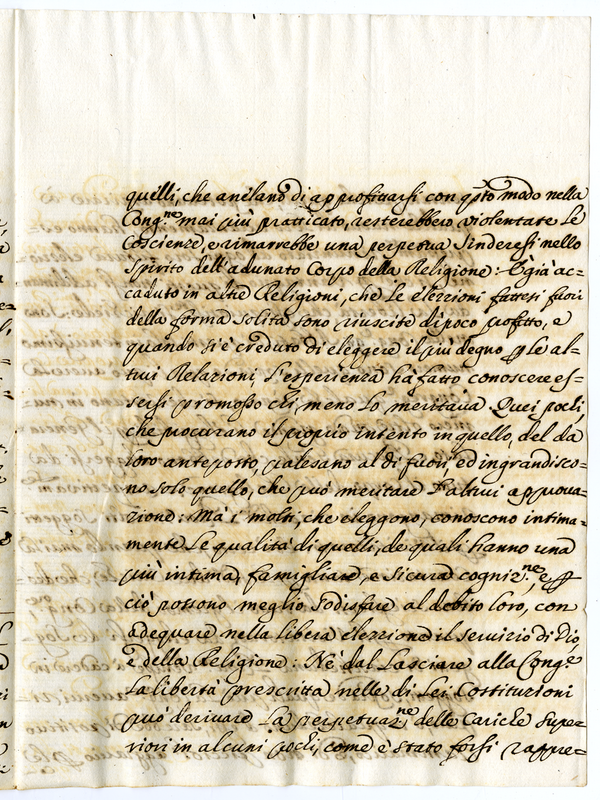 quelli, che anelano di approfittarsi con q.sto modo nella
Cong.ne mai più pratticato, resterebbero violentate le
Coscienze, e rimarrebbe una perpetua Sinderesi nello
Spirito dell'adunato Corpo della Religione: E già ac=
caduto in altre Religioni, che le elezzioni fattesi fuori
della forma solita sono riuscite di poco profitto, e
quando si è creduto di eleggere il più degno p le al=
trui Relazioni, l'esperienza hà fatto conoscere es=
sersi promosso chi meno lo meritava. Quei pochi,
che procurano il proprio intento in quello, del da
loro anteposto, palesano al di fuori, ed ingrandisco=
no solo quello, che può meritare l'altrui approva=
zione: Mà i molti, che eleggono, conoscono intima=
mente le qualità di quelli, de quali hanno una
più intima, famigliare, e sicura cogniz.ne, e p
ciò possono meglio sodisfare al debito loro, con
adequare nella libera elezzione il servizio di Dio,
e della Religione: Nè dal lasciare alla Cong.e
la libertà prescritta nelle di Lei Costituzioni
può derivare la perpetuaz.ne delle Cariche super
riori in alcuni pochi, come è stato forsi rappre=